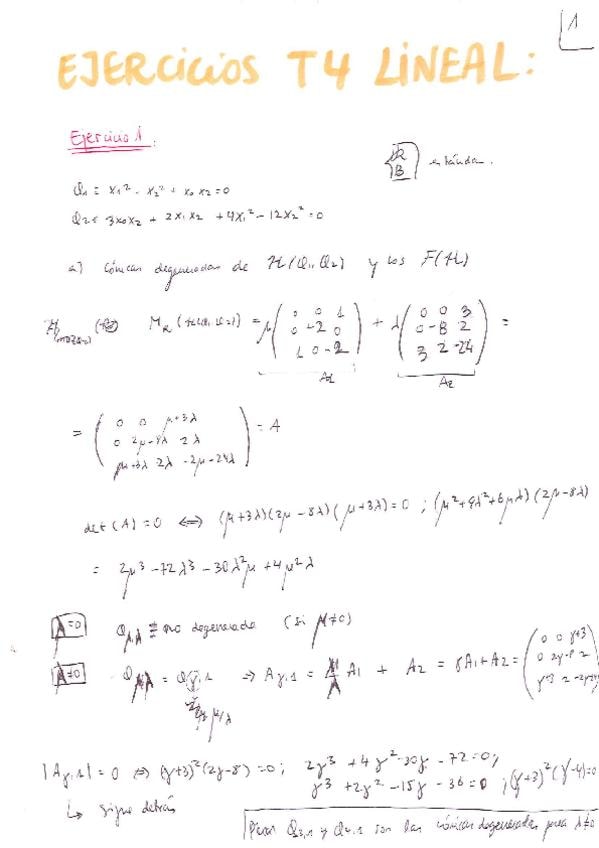 1
EJERCICIOS T4 LINEAL:
Ejercicio 1:
R
B estándar.
Q1 = x1² - x2² + x0 x2 = 0
Q2 = 3x0x2 + 2x1x2 + 4x1² - 12x2² = 0
a) cónicas degeneradas de H(Q1, Q2) y los F(H)
M_R (H(Q1, Q2)) = μ ( 0 0 1 ) + λ ( 0 0 3 ) =
( 0 +2 0 ) ( 0 -8 2 )
( 1 0 -2 ) ( 3 2 -24 )
A1 A2
= ( 0 0 μ+3λ ) = A
( 0 2μ-8λ 2λ )
( μ+3λ 2λ -2μ-24λ )
det (A) = 0 ⇔ (μ+3λ)(2μ-8λ)(μ+3λ) = 0 ; (μ²+9λ²+6μλ)(2μ-8λ)
= 2μ³ - 72λ³ - 30λ²μ + 4μ²λ
λ=0 Qμ,λ ≡ no degenerada (si μ≠0)
λ≠0 Qμ,λ = Qγ,1 ⇒ Aγ,1 = μ/λ A1 + A2 = γA1 + A2 = ( 0 0 γ+3 )
( 0 2γ-8 2 )
μ/λ ( γ+3 2 -2γ-24 )
|Aγ,1| = 0 ⇔ (γ+3)²(2γ-8) = 0; 2γ³ + 4γ² - 30γ - 72 = 0;
γ³ + 2γ² - 15γ - 36 = 0 ; (γ+3)²(γ-4) = 0
↳ sigue detrás
Q-3,1 y Q4,1 son las cónicas degeneradas para λ≠0